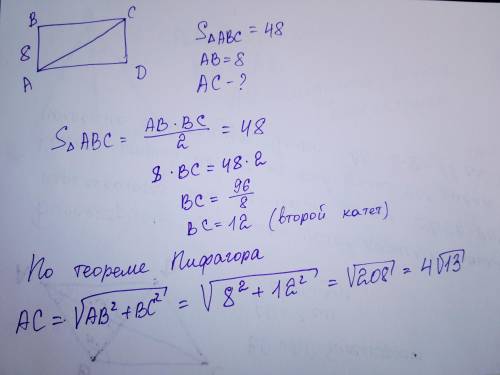 B C
8
A D
S△ABC = 48
AB = 8
AC - ?
S△ABC = AB · BC / 2 = 48
8 · BC = 48 · 2
BC = 96/8
BC = 12 (второй катет)
По теореме Пифагора
AC = √(AB² + BC²) = √(8² + 12²) = √208 = 4√13